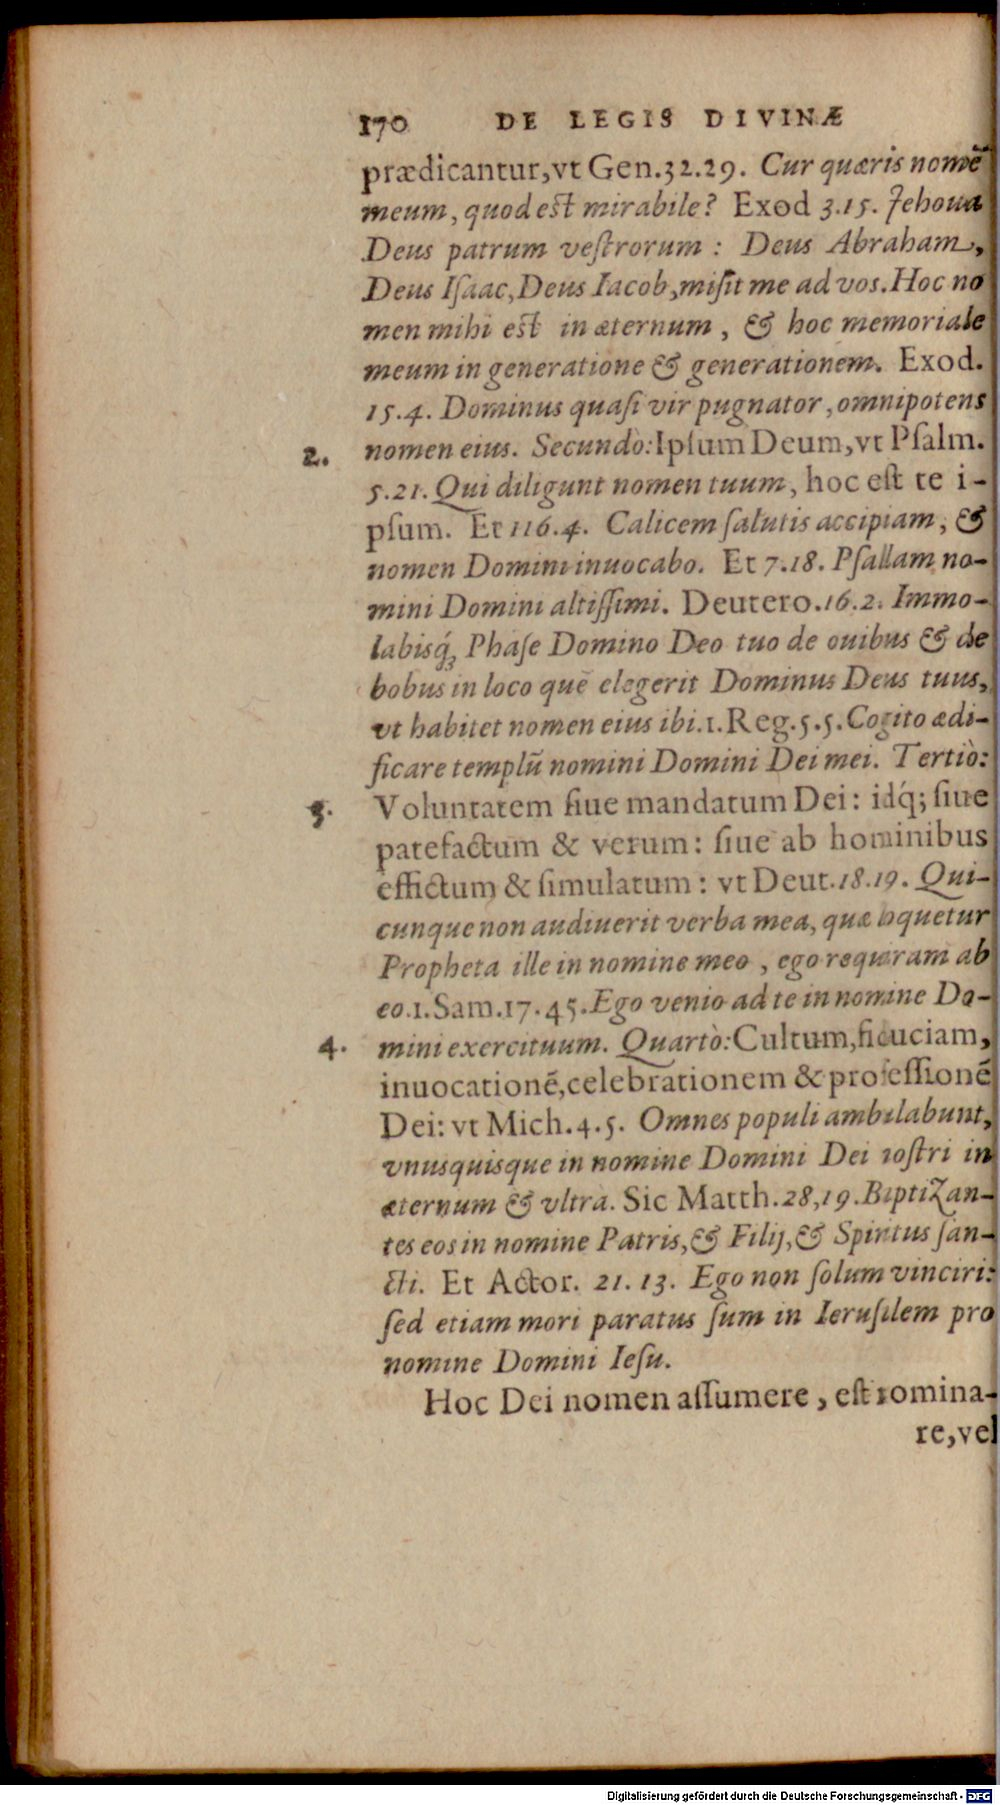 170 DE LEGIS DIVINÆ
prædicantur, vt Gen. 32. 29. Cur quæris nomẽ
meum, quod est mirabile? Exod 3. 15. Jehoua
Deus patrum vestrorum : Deus Abraham,
Deus Isaac, Deus Iacob, misit me ad vos. Hoc no
men mihi est in æternum, & hoc memoriale
meum in generatione & generationem. Exod.
15. 4. Dominus quasi vir pugnator, omnipotens
2. nomen eius. Secundò: Ipsum Deum, vt Psalm.
5. 21. Qui diligunt nomen tuum, hoc est te i-
psum. Et 116. 4. Calicem salutis accipiam, &
nomen Domini inuocabo. Et 7. 18. Psallam no-
mini Domini altissimi. Deutero. 16. 2. Immo-
labisq́ꝫ Phase Domino Deo tuo de ouibus & de
bobus in loco quẽ elegerit Dominus Deus tuus,
vt habitet nomen eius ibi. 1. Reg. 5. 5. Cogito ædi-
ficare templũ nomini Domini Dei mei. Tertiò:
3. Voluntatem siue mandatum Dei: idq́; siue
patefactum & verum: siue ab hominibus
effictum & simulatum: vt Deut. 18. 19. Qui-
cunque non audiuerit verba mea, quæ loquetur
Propheta ille in nomine meo, ego requiram ab
eo. 1. Sam. 17. 45. Ego venio ad te in nomine Do-
4. mini exercituum. Quartò: Cultum, fiduciam,
inuocationẽ, celebrationem & professionẽ
Dei: vt Mich. 4. 5. Omnes populi ambulabunt,
vnusquisque in nomine Domini Dei nostri in
æternum & vltra. Sic Matth. 28, 19. Baptizan-
tes eos in nomine Patris, & Filij, & Spiritus san-
cti. Et Actor. 21. 13. Ego non solum vinciri:
sed etiam mori paratus sum in Ierusalem pro
nomine Domini Iesu.
Hoc Dei nomen assumere, est nomina-
re, vel
Digitalisierung gefördert durch die Deutsche Forschungsgemeinschaft - DFG